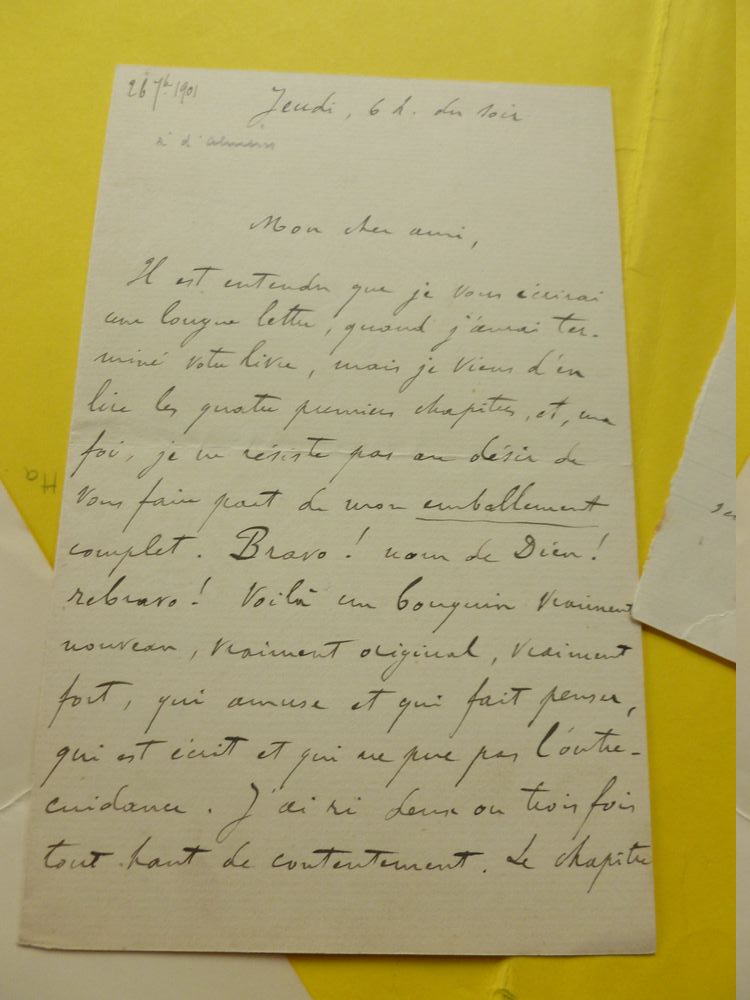 26 7b. 1901
Jeudi, 6 h. du soir
Mon cher ami,
Il est entendu que je vous écrirai
une longue lettre, quand j'aurai ter-
miné votre livre, mais je viens d'en
lire les quatre premiers chapitres, et, ma
foi, je ne résiste pas au désir de
vous faire part de mon emballement
complet. Bravo ! nom de Dieu !
rebravo ! Voilà un bouquin vraiment
nouveau, vraiment original, vraiment
fort, qui amuse et qui fait penser,
qui est écrit et qui ne pue pas l'outre-
cuidance. J'ai ri deux ou trois fois
tout haut de contentement. Le chapitre
Ha